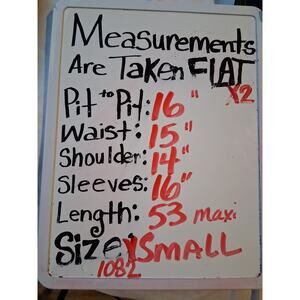 Measurements
Are Taken FLAT
X2
Pit to Pit: 16"
Waist: 15"
Shoulder: 14"
Sleeves: 16"
Length: 53 maxi
Size XSMALL
1082